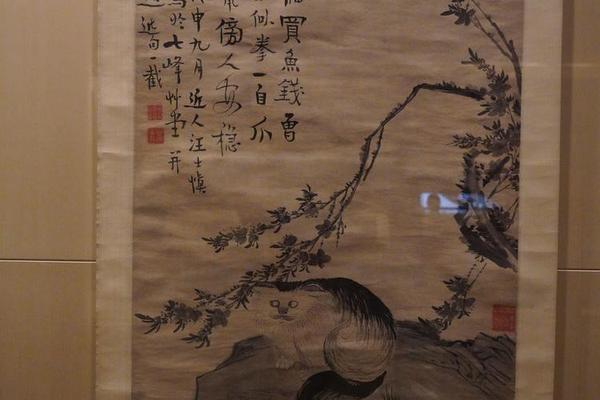 買魚錢曾
似拳一自爪
傍人安穩
申九月近人汪士慎
寫於七峰艸堂并
近句一截